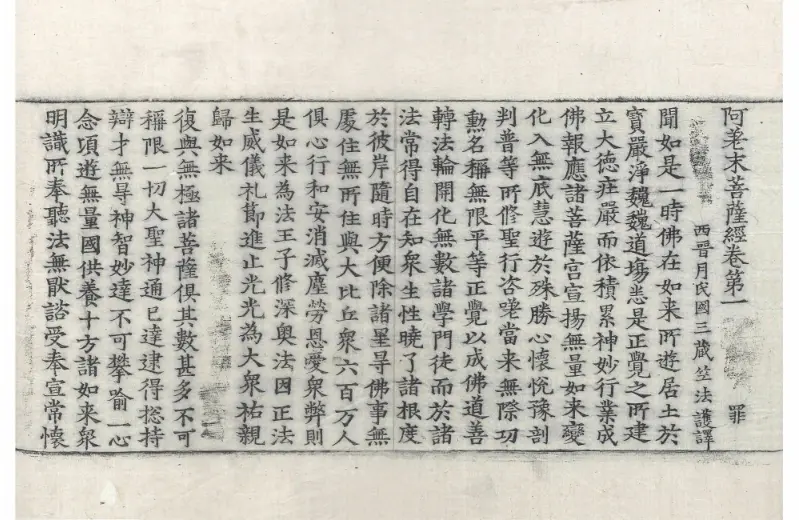 阿差末菩薩經卷第一 罪
西晉月氏國三蔵竺法護譯
聞如是一時佛在如來所遊居土於
寶嚴淨巍巍道場悉是正覺之所建
立大德莊嚴而依積累神妙行業成
佛報應諸菩薩宫宣揚無量如來變
化入無底慧遊於殊勝心懷悅豫剖
判普等所修聖行咨嗟當来無際功
勳名稱無限平等正覺以成佛道善
轉法輪開化無數諸學門徒而於諸
法常得自在知衆生性曉了諸根度
於彼岸隨時方便除諸罣㝵佛事無
處住無所住與大比丘衆六百万人
俱心行和安消滅塵勞恩愛衆弊則
是如来為法王子修深奥法因正法
生威儀礼莭進止光光為大衆祐親
歸如来
復與無極諸菩薩俱其數甚多不可
稱限一切大聖神通已達逮得揔持
辯才無㝵神智妙達不可攀喻一心
念頃遊無量國供養十方諸如来衆
明識所奉聽法無猒諮受奉宣常懷